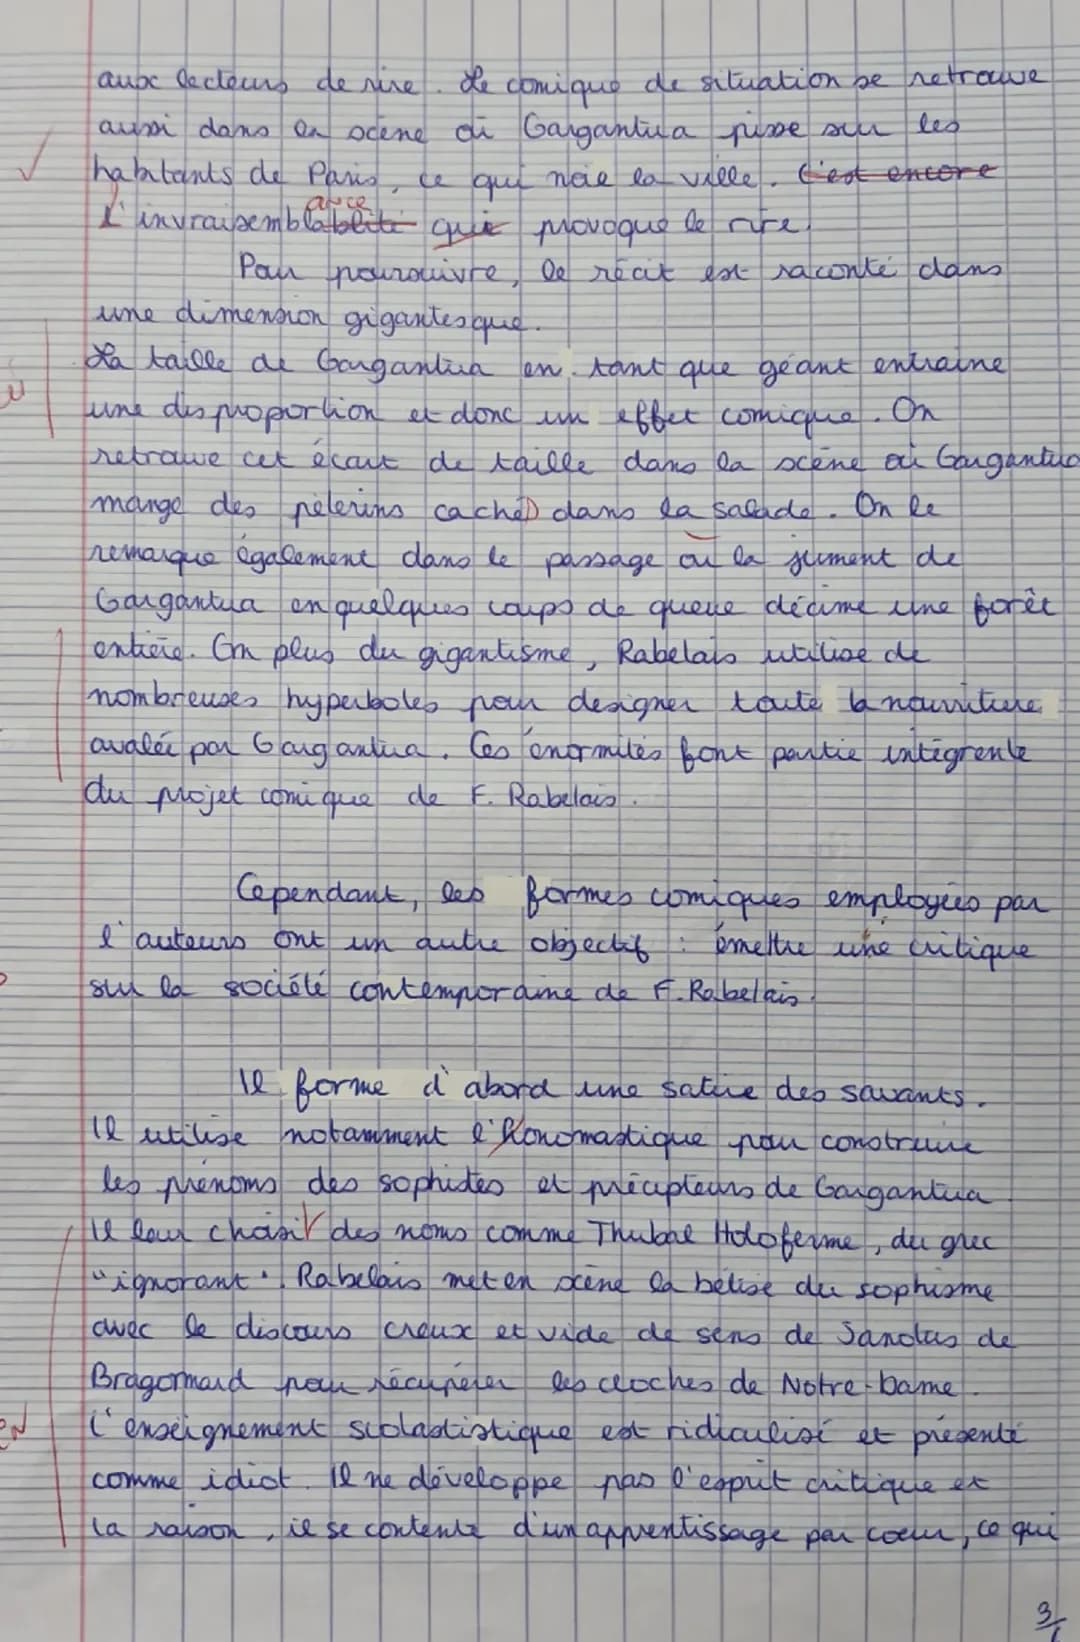 aux lecteurs de rire. Le comique de situation se retrouve
aussi dans la scène où Gargantua pisse sur les
habitants de Paris, ce qui noie la ville. C'est encore
ance
L'invraisemblablité qui provoque le rire.
Pour poursuivre, le récit est raconté dans
une dimension gigantesque.
La taille de Gargantua en tant que géant entraine
une disproportion et donc un effet comique. On
retrouve cet écart de taille dans la scène où Gargantua
mange des pèlerins cachés dans la salade. On le
remarque également dans le passage où la jument de
Gargantua en quelques coups de queue décime une forêt
entière. En plus du gigantisme, Rabelais utilise de
nombreuses hyperboles pour designer toute la nourriture
avalée par Gargantua. Ces énormités font partie intégrente
du projet comique de F. Rabelais.
Cependant, les formes comiques employées par
l'auteurs ont un autre objectif : émettre une critique
sur la société contemporaine de F. Rabelais.
Il forme d'abord une satire des savants.
Il utilise notamment l'honomastique pour construire
les prénoms des sophistes et précepteurs de Gargantua
Il leur choisit des noms comme Thubal Holoferme, du grec
"ignorant". Rabelais met en scène la bêtise du sophisme
avec le discours creux et vide de sens de Janotus de
Bragomard pour récupérer les cloches de Notre-Dame.
L'enseignement scolastistique est ridiculisé et présenté
comme idiot. Il ne développe pas l'esprit critique et
la raison, il se contente d'un apprentissage par coeur, ce qui
3/